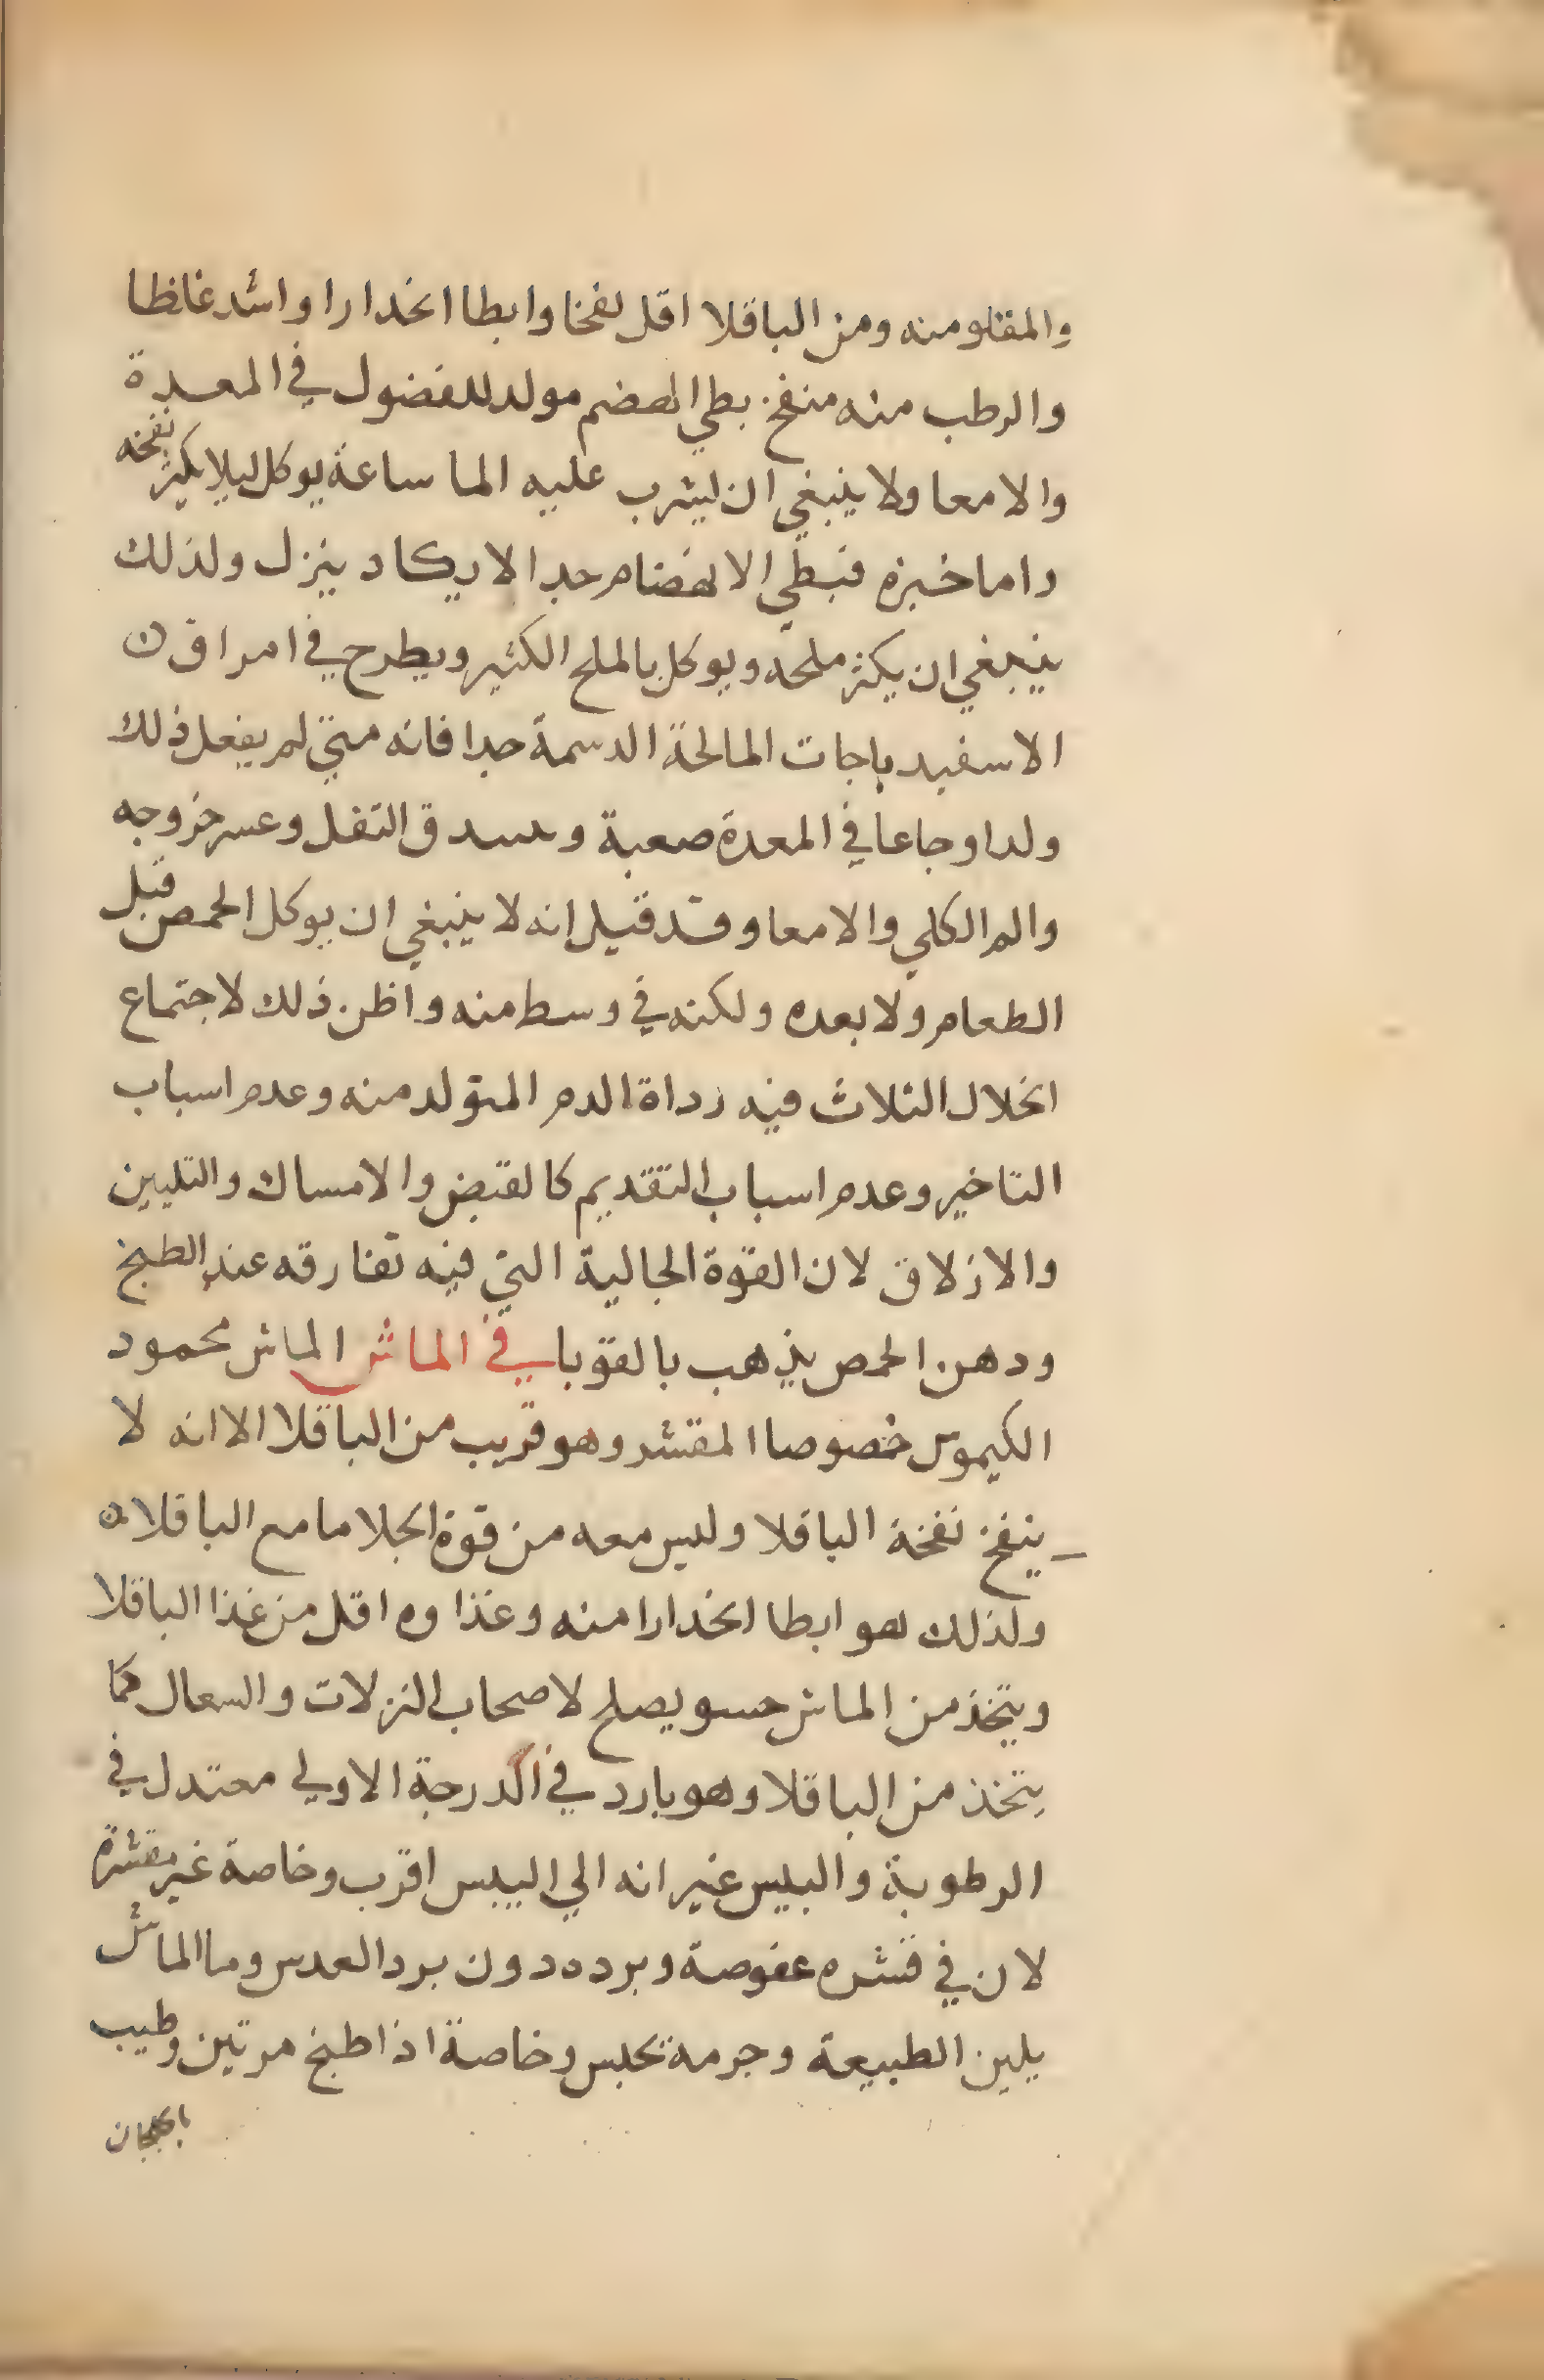 والمقلو منه ومن الباقلا اقل نفخا وابطا انحدارا واشد غلظا
والرطب منه منفخ بطي الهضم مولد للفضول في المعدة
والامعا ولا ينبغي ان يشرب عليه الما ساعة يوكل ليلا يكثر نفخه
واما خبزه فبطي الانهضام جدا لا يكاد ينزل ولذلك
ينبغي ان يكثر ملحه ويوكل بالملح الكثير ويطرح في امراق
الاسفيدباجات المالحة الدسمة جدا فانه متي لم يفعل ذلك
ولد اوجاعا في المعدة صعبة و الثفل وعسر خروجه
والم الكلي والامعا وقد قيل انه لا ينبغي ان يوكل الحمص قبل
الطعام ولا بعده ولكنه في وسط منه واظن ذلك لاجتماع
الخلال الثلاث فيه رداة الدم المتولد منه وعدم اسباب
التاخير وعدم اسباب التقديم كالقبض والامساك والتليين
والازلاق لان القوة الجالية التي فيه تفارقه عند الطبخ
ودهن الحمص يذهب بالقوبا في الماش الماش محمود
الكيموس خصوصا المقشر وهو قريب من الباقلا الا انه لا
ينفخ نفخة الباقلا وليس معه من قوة الجلا ما مع الباقلا
ولذلك هو ابطا انحدارا منه وغذاوه اقل من غذا الباقلا
ويتخذ من الماش حسو يصلح لاصحاب النزلات والسعال كما
يتخذ من الباقلا وهو بارد في الدرجة الاولي معتدل في
الرطوبة واليبس غير انه الي اليبس اقرب وخاصة غير مقشرة
لان في قشره عفوصة وبرده دون برد العدس وما الماش
يلين الطبيعة وجرمه تحبس وخاصة اذا طبخ مرتين وطيب